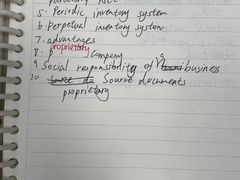 5. Periodic inventory system
6. Perpetual inventory system
7. advantages
proprietary
8. P company
9 Social responsibility of a business
10 Source documents
proprietary